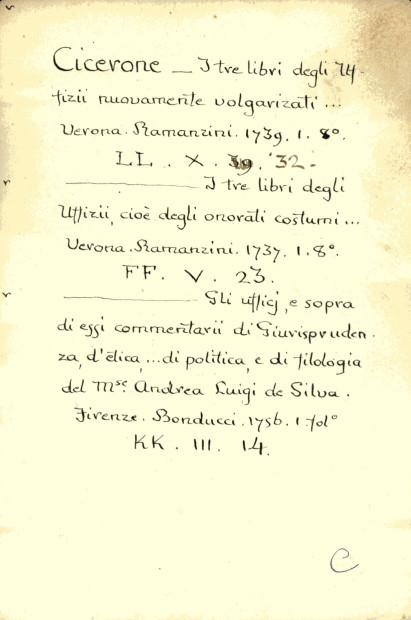 Cicerone — I tre libri degli Uf-
fizii nuovamente volgarizati ...
Verona. Ramanzini. 1739. 1. 8º.
LL. X. 39. 32.
——— I tre libri degli
Uffizii, cioè degli onorati costumi ...
Verona. Ramanzini. 1737. 1. 8º.
FF. V. 23.
——— Gli ufficj, e sopra
di essi commentarii di Giurispruden-
za, d'etica, ... di politica, e di filologia
del Mse. Andrea Luigi de Silva.
Firenze. Bonducci. 1756. 1 folº
KK. III. 14.
C